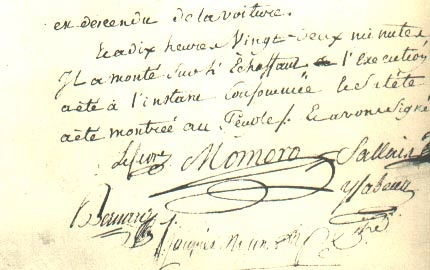 en descendu de la voiture.
Et a dix heures Vingt-deux minutes
Il a monté sur L'Echaffaut et l'Execution
a été à l'instant Consommée La tête
a été montrée au Peuple Et avons Signé
Lefevre Momoro Sallais
Isabeau